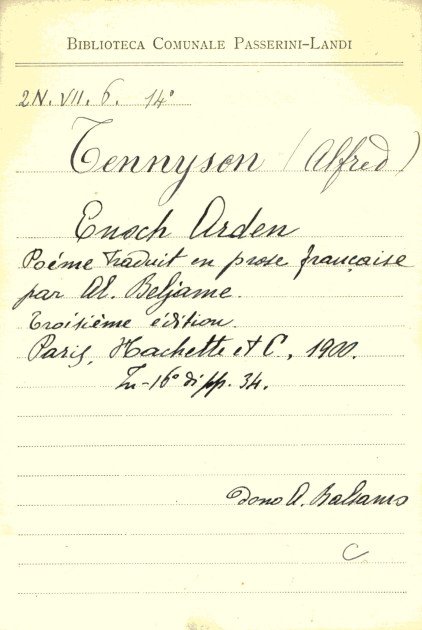 BIBLIOTECA COMUNALE PASSERINI-LANDI
2N. VII. 6. 14°
Tennyson (Alfred)
Enoch Arden
Poéme traduit en prose française
par Al. Beljame.
Troisième édition.
Paris, Hachette et C., 1900.
In-16° di pp. 34.
Dono A. Balsamo
C